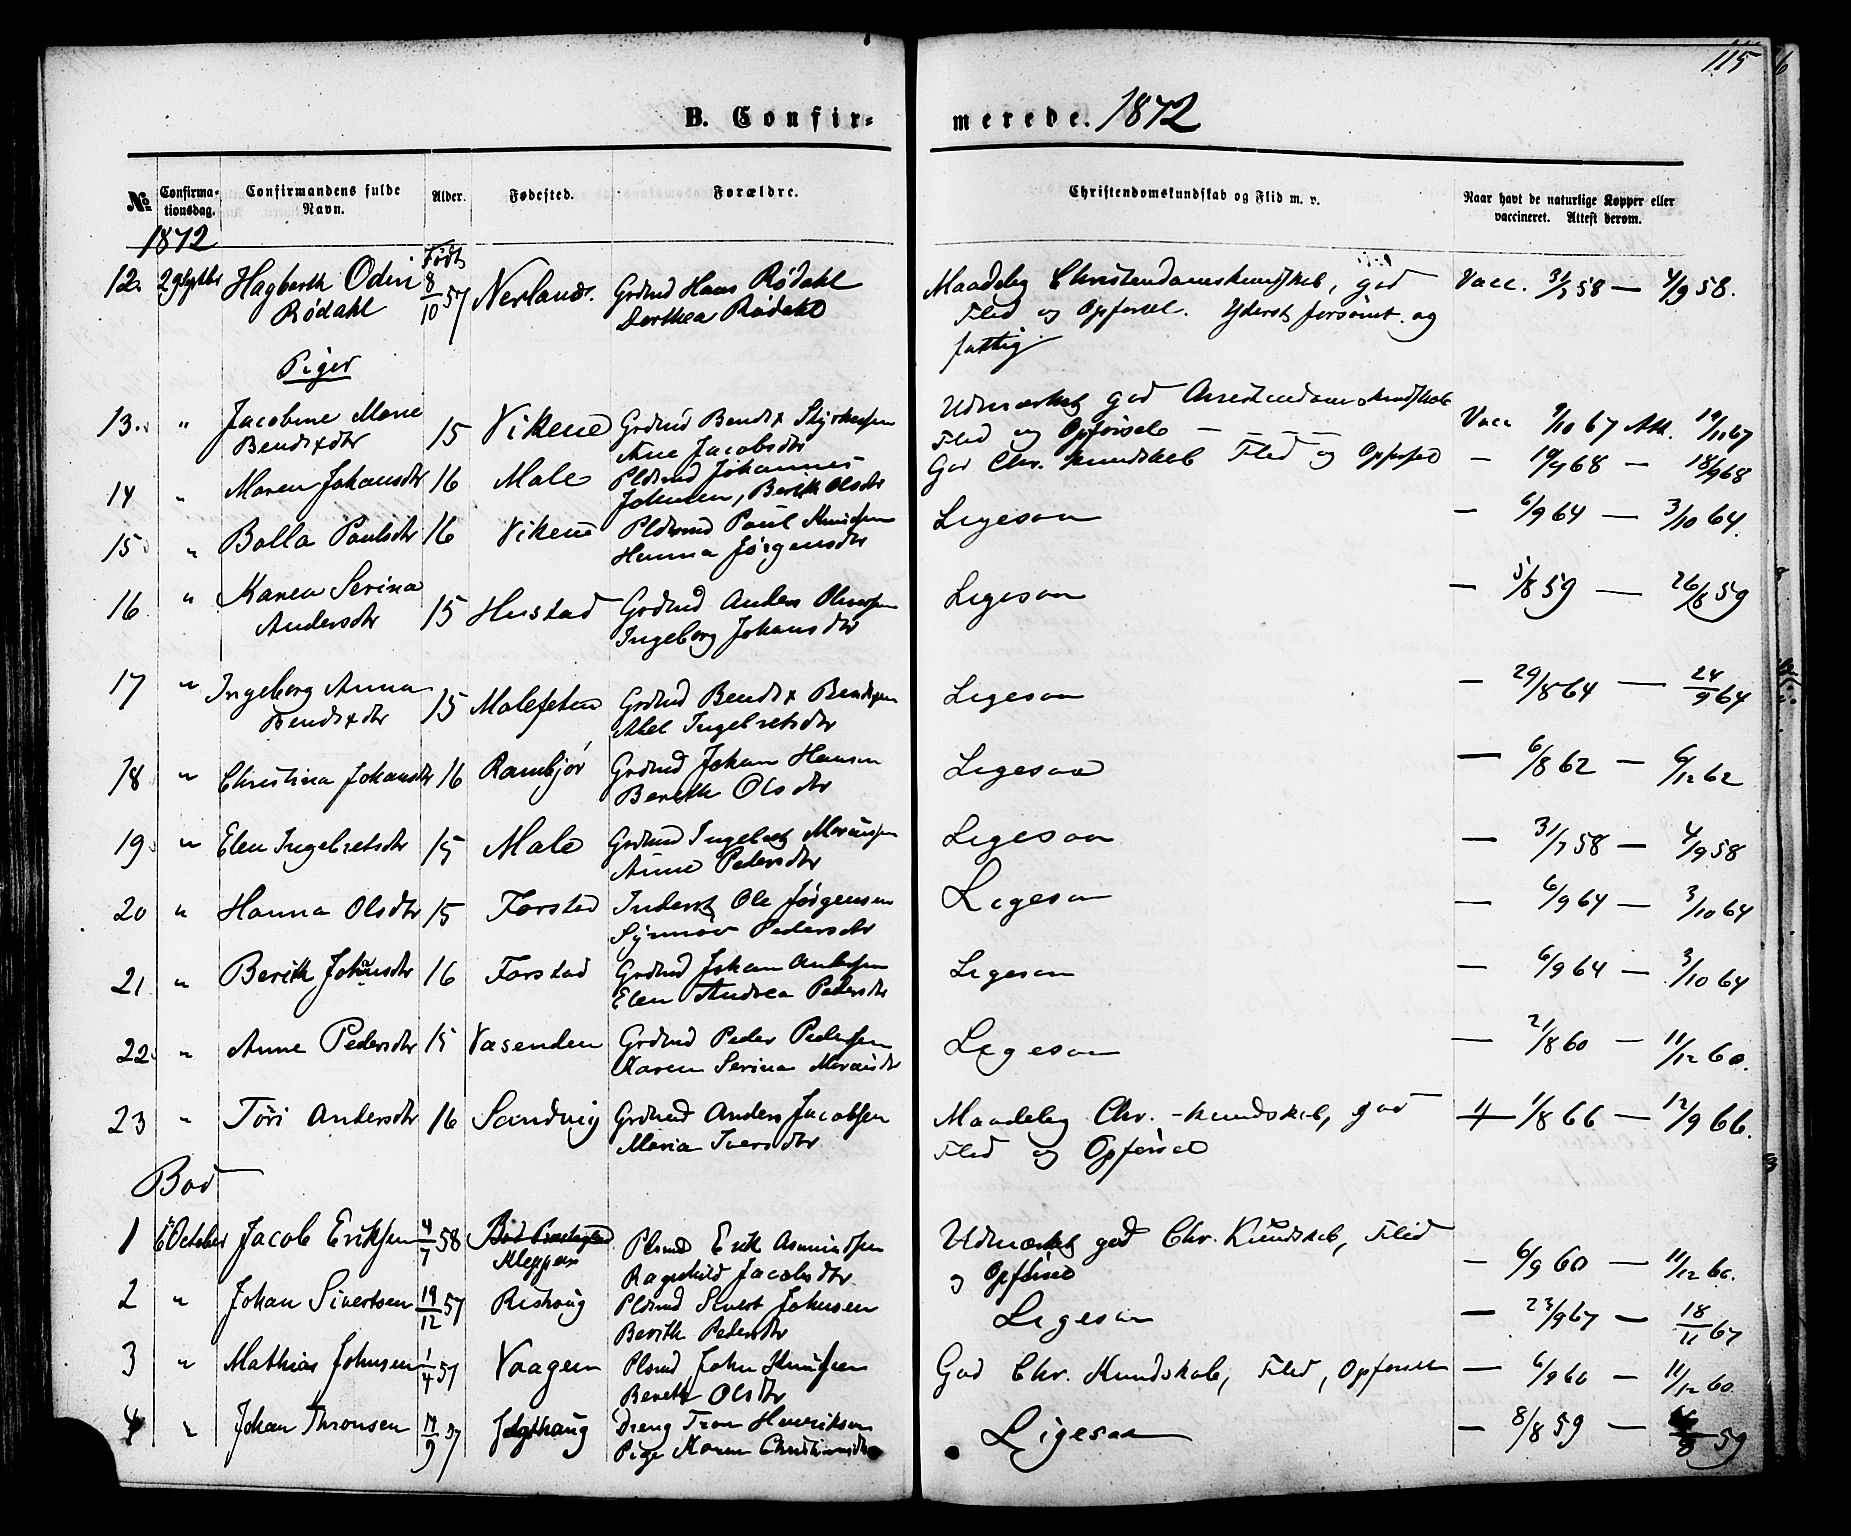 115
B. Confir-
merede. 1872
No.
Confirmationsdag.
Confirmandens fulde Navn.
Alder.
Fødested.
Forældre.
Christendomskundskab og Flid m. v.
Naar havt de naturlige Kopper eller vaccineret. Attest derom.
1872
12. 29 Septbr Hagbarth Odin Født 8/10 57 Nerland. Grdmd Hans Rødahl Maadelig Christendomskundskab, god Vacc. 31/7 58 — 4/9 58.
Rødahl Dorthea Rødahl Flid og Opførsel. Yderst forsømt og
fattig.
Piger
13. " Jacobine Marie 15 Vikene Grdmd Bendix Udmærket god Christendomskundskab Vacc 9/10 67 Att. 19/11 67
Bendixdtr Ane Jacobsdtr Flid og Opførsel
14 " Maren Johansdtr 16 Male Pldsmd Johannes God Chr. kundskab Flid og Opførsel — 19/9 68 — 18/9 68
Johnsen, Berith Olsdtr
15 " Bolla Paulsdtr 16 Vikene Pldsmd Paul Knudsen Ligesaa — 6/9 64 — 3/10 64.
Hanna Jørgensdtr
16 " Karen Serina 15 Hustad Grdmd Anders Ligesaa — 5/8 59 — 26/8 59
Andersdtr Ingeborg Johansdtr
17 " Ingeborg Anna 15 Malefeten Grdmd Bendix Bendixsen Ligesaa — 29/8 64 — 24/9 64
Bendixdtr Abel Ingebretsdtr
18 " Christina Johansdtr 16 Rambjør Grdmd Johan Hansen Ligesaa — 6/8 62 — 6/12 62
Berith Olsdtr
19 " Elen Ingebretsdtr 15 Male Grdmd Ingebret Ligesaa — 31/7 58 — 4/9 58
Anne Pedersdtr
20 " Hanna Olsdtr 15 Farstad Inderst Ole Jørgensen Ligesaa — 6/9 64 — 3/10 64
Synnøv Pedersdtr
21 " Berith Johansdtr 16 Farstad Grdmd Johan Andersen Ligesaa — 6/9 64 — 3/10 64
Elen Andrea Pedersdtr
22 " Anne Pedersdtr 15 Vasenden Grdmd Peder Pedersen Ligesaa — 21/8 60 — 11/12 60.
Karen Serina
23 " Töri Andersdtr 16 Sandvig Grdmd Anders Jacobsen Maadelig Chr. -kundskab, god 1/8 66 — 12/9 66.
Maria Iversdtr Flid og Opførsel
Bod
1 6 October Jacob Eriksen 4/7 58 Bod Præstegaard Plsmd Erik Asmundsen Udmærket god Chr. Kundskab, Flid — 6/9 60 — 11/12 60.
Kleppen Ragnhild Jacobsdtr og Opførsel
2 " Johan Sivertsen 19/12 57 Rishaug Pldsmd Sivert Johnsen Ligesaa — 23/9 67 — 18/11 67
Berith Pedersdtr
3 " Mathias Johnsen 1/4 57 Vaagen Plsmd John Knudsen God Chr. Kundskab, Flid, Opførsel — 6/9 60 — 11/12 60
Bereth Olsdtr
4 " Johan Thronsen 19/9 57 Dreng Tron Henriksen Ligesaa — 8/8 59 — 59
Pige Karen Christiansdtr